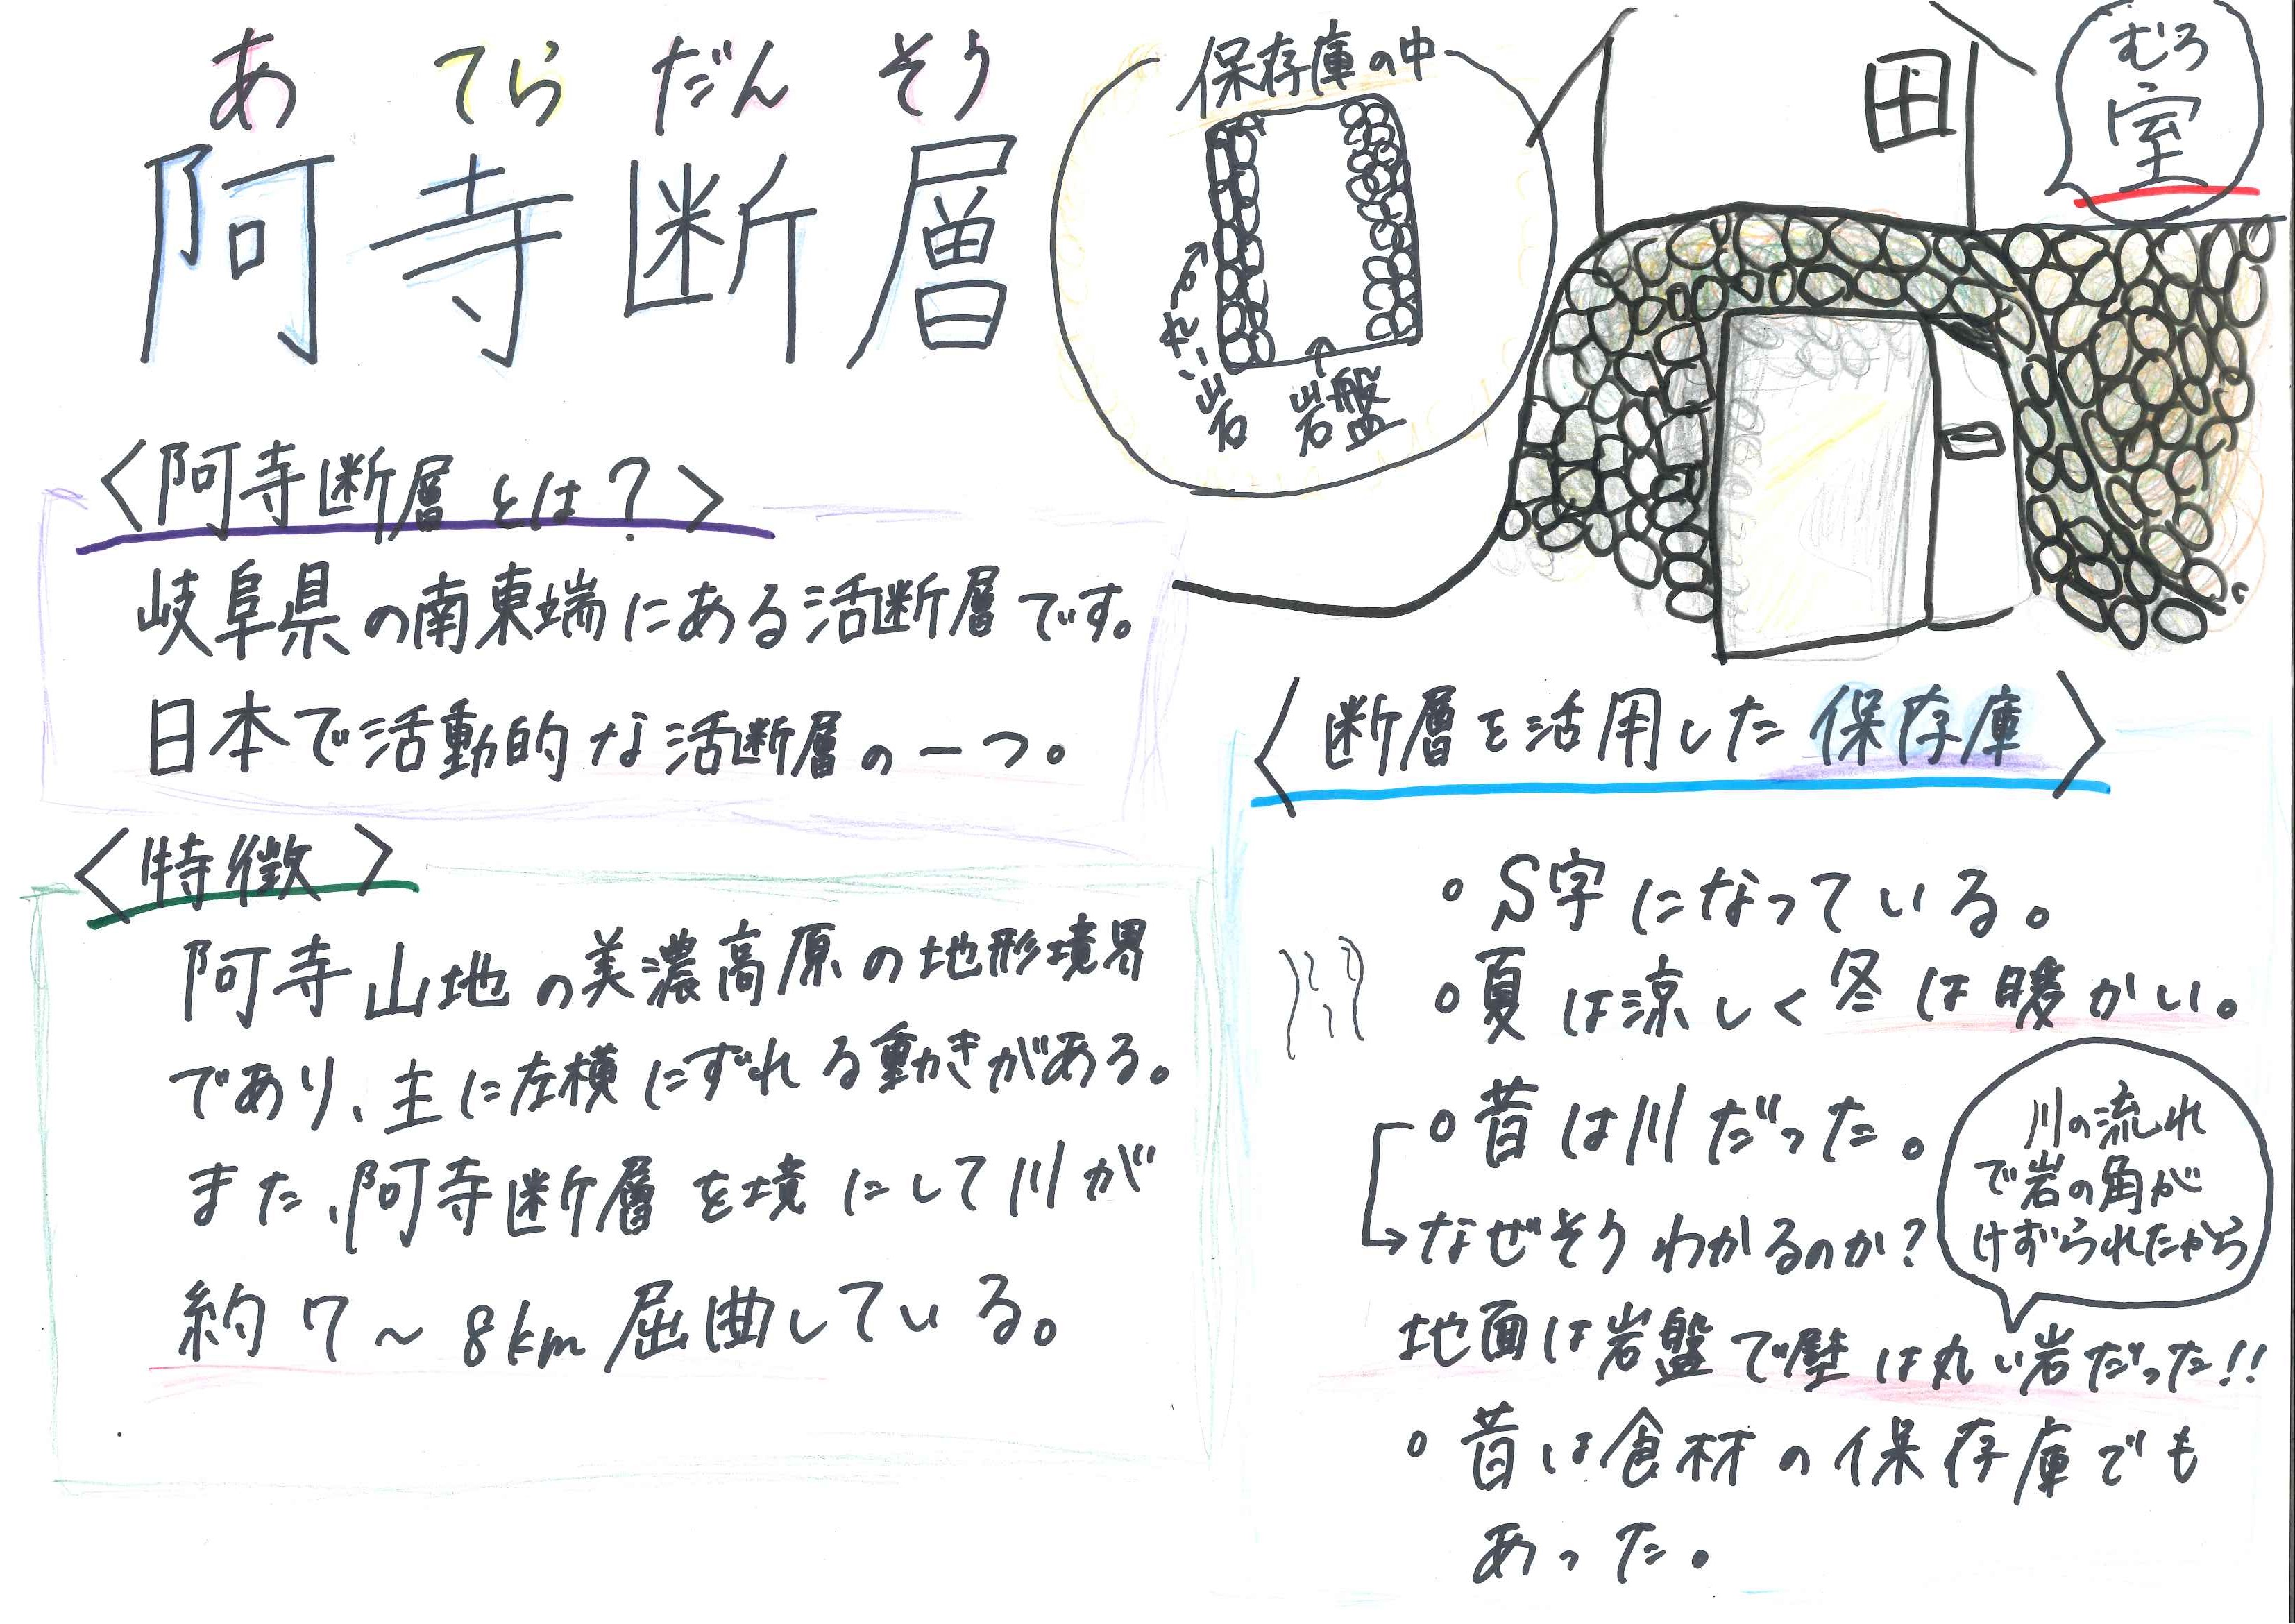 あ てら だん そう
阿寺断層
保存庫の中
きれいな岩
岩盤
むろ
室
〈阿寺断層とは？〉
岐阜県の南東端にある活断層です。
日本で活動的な活断層の一つ。
〈特徴〉
阿寺山地の美濃高原の地形境界
であり、主に左横にずれる動きがある。
また、阿寺断層を境にして川が
約7～8km屈曲している。
〈断層を活用した保存庫〉
・S字になっている。
・夏は涼しく冬は暖かい。
・昔は川だった。
→なぜそうわかるのか？
川の流れ
で岩の角が
けずられたから
地面は岩盤で壁は丸い岩だった!!
・昔は食材の保存庫でも
あった。